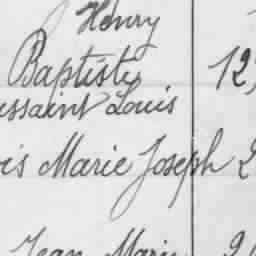 Henry
Baptiste 12,
ussaint Louis
is Marie Joseph 2
Jean Marie 2